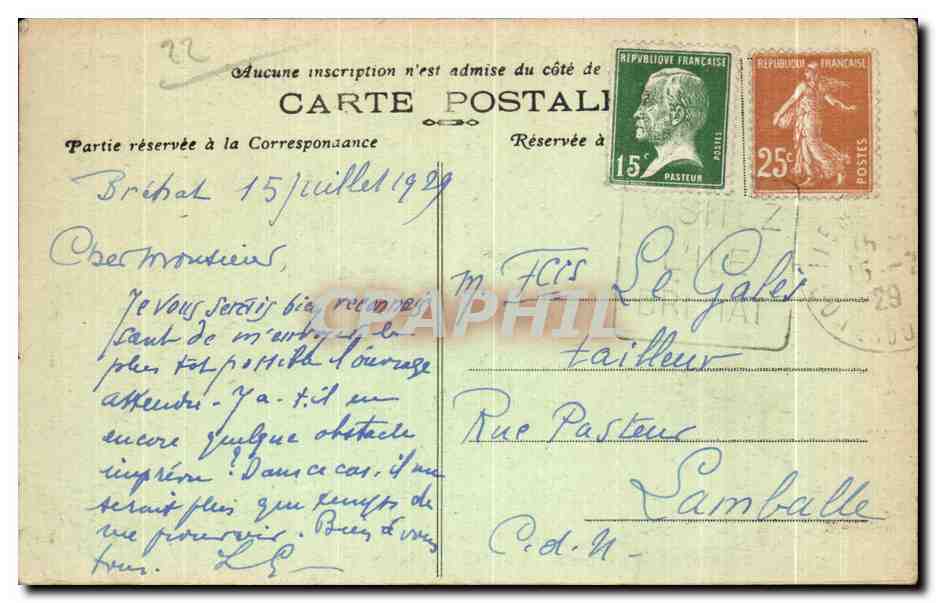 22
Aucune inscription n'est admise du côté de
CARTE POSTAL
Partie réservée à la Correspondance
Réservée à
REPVBLIQUE FRANÇAISE
15c
POSTES
PASTEUR
REPUBLIQUE FRANÇAISE
25c
POSTES
VISITEZ
L'ILE
DE
BREHAT
29
Bréhat 15 juillet 1929
Cher Monsieur,
Je vous serais bien reconnais
sant de m'envoyer le
plus tôt possible l'ouvrage
attendu - Y a-t-il eu
encore quelque obstacle
imprévu? Dans ce cas, il me
serait plus que temps de
me pourvoir. Bien à vous
tous. LG
M Fcis Le Galès
tailleur
Rue Pasteur
Lamballe
C.d.N-
CPAPHIL